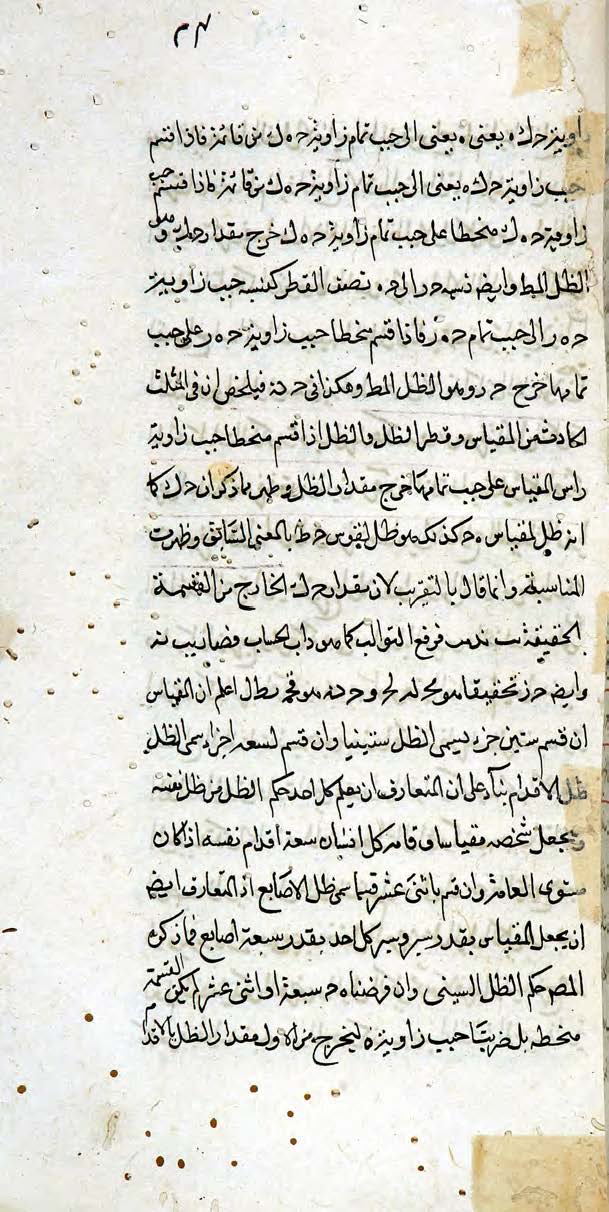 ٢٤
زاوية ح ه ك يعنى ه يعنى الى جيب تمام زاوية ح ه ك من قائمة فاذا قسم
جيب زاوية ح ك ه يعنى الى جيب تمام زاوية ح ه ك من قائمة فاذا قسم جيب
زاوية ح ه ك منحطا على جيب تمام زاوية ح ه ك خرج مقدار ح ك وهو
الظل المبسوط وايضا نسبة ح ر الى ح ه نصف القطر كنسبة جيب زاوية
ح ه ر الى جيب تمام ح ه ر فاذا قسم منحطا جيب زاوية ح ه ر على جيب
تمامها خرج ح ر وهو الظل المبسوط وهكذا فى فيلخص ان فى المثلث
الحادث من المقياس وقطر الظل والظل اذا قسم منحطا جيب زاوية
راس المقياس على جيب تمامها خرج مقدار الظل وظهر مما ذكر ان ح ك كما
انه ظل لمقياس ه ح كذلك هو ظل لقوس ح ط بالمعنى السابق وظهرت
المناسبة وانما قال بالتقريب لان مقدار ح ك الخارج من القسمة
الحقيقة فرفع الثوالث كما هو داب الحساب فصار
وايضا ح ر تحقيقا هو و هو قال اعلم ان المقياس
ان قسم ستين جزء يسمى الظل ستينيا وان قسم لسبعة اجزاء سمى الظل
ظل الاقدام بناء على ان المتعارف ان يعلم كل احد حكم الظل من ظل نفسه
ويجعل شخصه مقياسا وقامة كل انسان سبعة اقدام نفسه اذا كان
مستوى القامة وان قسم باثنى عشر قسما سمى ظل الاصابع اذ المتعارف ايضا
ان يجعل المقياس بقدر شبر وشبر كل احد بقدر اصابع فما ذكره
المص حكم الظل الستينى وان فرضناه ح سبعة او اثنى عشر لم يكن القسمة
منحطة بل ضربنا جيب زاوية ه ليخرج من الاول مقدار الظل بالاقدام